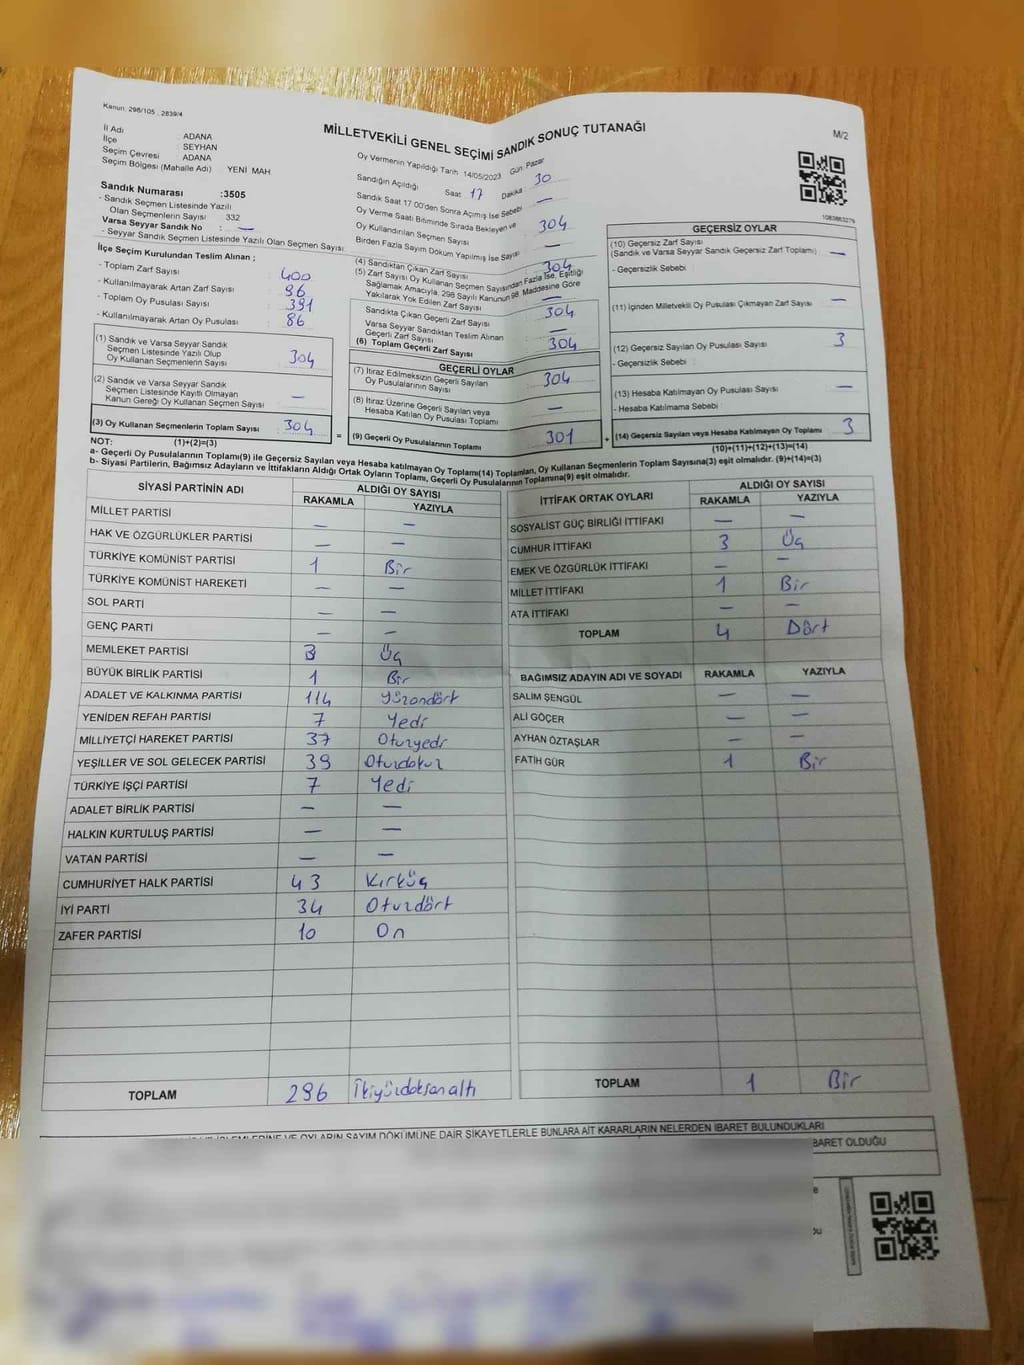 Kanun: 298/105 , 2839/4
MİLLETVEKİLİ GENEL SEÇİMİ SANDIK SONUÇ TUTANAĞI
M/2
İl Adı : ADANA
İlçe : SEYHAN
Seçim Çevresi : ADANA
Seçim Bölgesi (Mahalle Adı) YENİ MAH
Sandık Numarası :3505
- Sandık Seçmen Listesinde Yazılı
Olan Seçmenlerin Sayısı : 332
Varsa Seyyar Sandık No : —
- Seyyar Sandık Seçmen Listesinde Yazılı Olan Seçmen Sayısı:
İlçe Seçim Kurulundan Teslim Alınan ;
- Toplam Zarf Sayısı : 400
- Kullanılmayarak Artan Zarf Sayısı : 96
- Toplam Oy Pusulası Sayısı : 391
- Kullanılmayarak Artan Oy Pusulası : 86
(1) Sandık ve Varsa Seyyar Sandık
Seçmen Listesinde Yazılı Olup
Oy Kullanan Seçmenlerin Sayısı : 304
(2) Sandık ve Varsa Seyyar Sandık
Seçmen Listesinde Kayıtlı Olmayan
Kanun Gereği Oy Kullanan Seçmen Sayısı : —
(3) Oy Kullanan Seçmenlerin Toplam Sayısı : 304
Oy Vermenin Yapıldığı Tarih 14/05/2023 Gün: Pazar
Sandığın Açıldığı Saat 17 Dakika 30
Sandık Saat 17.00'den Sonra Açılmış İse Sebebi —
Oy Verme Saati Bitiminde Sırada Bekleyen ve
Oy Kullandırılan Seçmen Sayısı 304
Birden Fazla Sayım Döküm Yapılmış İse Sayısı —
(4) Sandıktan Çıkan Zarf Sayısı : 304
(5) Zarf Sayısı Oy Kullanan Seçmen Sayısından Fazla İse, Eşitliği
Sağlamak Amacıyla, 298 Sayılı Kanunun 98. Maddesine Göre
Yakılarak Yok Edilen Zarf Sayısı —
Sandıkta Çıkan Geçerli Zarf Sayısı : 304
Varsa Seyyar Sandıktan Teslim Alınan
Geçerli Zarf Sayısı : —
(6) Toplam Geçerli Zarf Sayısı : 304
GEÇERLİ OYLAR
(7) İtiraz Edilmeksizin Geçerli Sayılan
Oy Pusulalarının Sayısı : 304
(8) İtiraz Üzerine Geçerli Sayılan veya
Hesaba Katılan Oy Pusulası Toplamı : —
= (9) Geçerli Oy Pusulalarının Toplamı : 301
1083863279
GEÇERSİZ OYLAR
(10) Geçersiz Zarf Sayısı
(Sandık ve Varsa Seyyar Sandık Geçersiz Zarf Toplamı) : —
- Geçersizlik Sebebi :
(11) İçinden Milletvekili Oy Pusulası Çıkmayan Zarf Sayısı : —
(12) Geçersiz Sayılan Oy Pusulası Sayısı : 3
- Geçersizlik Sebebi :
(13) Hesaba Katılmayan Oy Pusulası Sayısı : —
- Hesaba Katılmama Sebebi
+ (14) Geçersiz Sayılan veya Hesaba Katılmayan Oy Toplamı : 3
NOT: (1)+(2)=(3)
(10)+(11)+(12)+(13)=(14)
a- Geçerli Oy Pusulalarının Toplamı(9) ile Geçersiz Sayılan veya Hesaba katılmayan Oy Toplamı(14) Toplamları, Oy Kullanan Seçmenlerin Toplam Sayısına(3) eşit olmalıdır. (9)+(14)=(3)
b- Siyasi Partilerin, Bağımsız Adayların ve İttifakların Aldığı Ortak Oyların Toplamı, Geçerli Oy Pusulalarının Toplamına(9) eşit olmalıdır.
SİYASİ PARTİNİN ADI ALDIĞI OY SAYISI
RAKAMLA YAZIYLA
MİLLET PARTİSİ — —
HAK VE ÖZGÜRLÜKLER PARTİSİ — —
TÜRKİYE KOMÜNİST PARTİSİ 1 Bir
TÜRKİYE KOMÜNİST HAREKETİ — —
SOL PARTİ — —
GENÇ PARTİ — —
MEMLEKET PARTİSİ 3 Üç
BÜYÜK BİRLİK PARTİSİ 1 Bir
ADALET VE KALKINMA PARTİSİ 114 Yüzondört
YENİDEN REFAH PARTİSİ 7 Yedi
MİLLİYETÇİ HAREKET PARTİSİ 37 Otuzyedi
YEŞİLLER VE SOL GELECEK PARTİSİ 39 Otuzdokuz
TÜRKİYE İŞÇİ PARTİSİ 7 Yedi
ADALET BİRLİK PARTİSİ — —
HALKIN KURTULUŞ PARTİSİ — —
VATAN PARTİSİ — —
CUMHURİYET HALK PARTİSİ 43 Kırküç
İYİ PARTİ 34 Otuzdört
ZAFER PARTİSİ 10 On
TOPLAM 296 İkiyüzdoksanaltı
İTTİFAK ORTAK OYLARI ALDIĞI OY SAYISI
RAKAMLA YAZIYLA
SOSYALİST GÜÇ BİRLİĞİ İTTİFAKI — —
CUMHUR İTTİFAKI 3 Üç
EMEK VE ÖZGÜRLÜK İTTİFAKI — —
MİLLET İTTİFAKI 1 Bir
ATA İTTİFAKI — —
TOPLAM 4 Dört
BAĞIMSIZ ADAYIN ADI VE SOYADI RAKAMLA YAZIYLA
SALİM ŞENGÜL — —
ALİ GÖÇER — —
AYHAN ÖZTAŞLAR — —
FATİH GÜR 1 Bir
TOPLAM 1 Bir
OYLARIN SAYIM DÖKÜMÜNE DAİR ŞİKAYETLERLE BUNLARA AİT KARARLARIN NELERDEN İBARET BULUNDUKLARI
BARET OLDUĞU